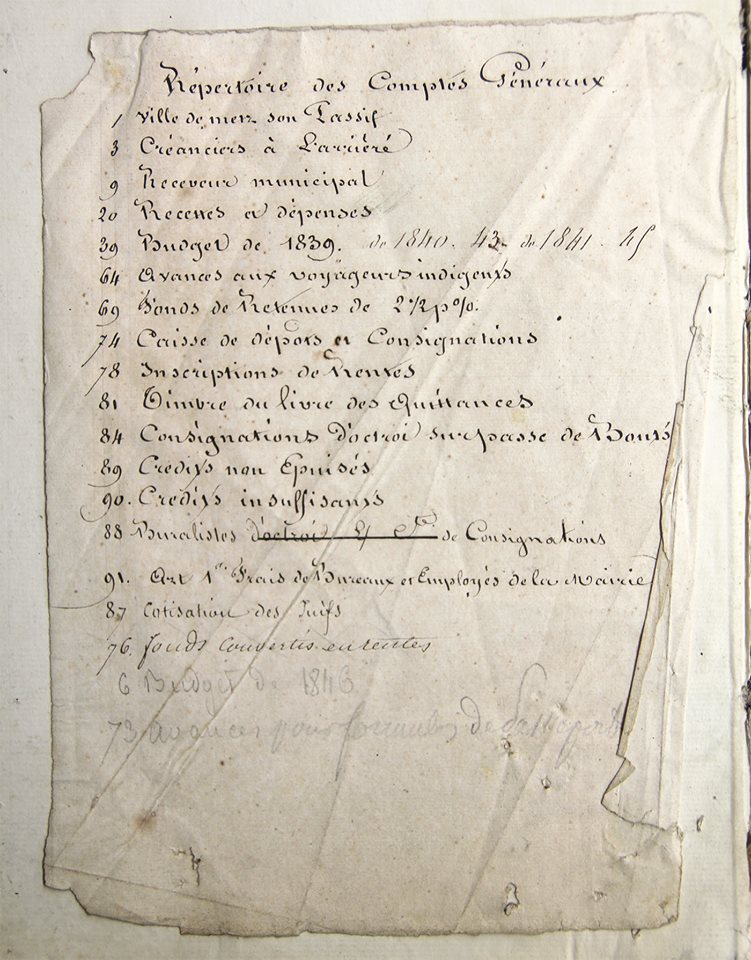 Répertoire des Comptes Généraux
1 Ville de metz son Passif
3 Créanciers à L'arriéré
9 Receveur municipal
20 Recettes et dépenses
39 Budget de 1839. de 1840. 43. de 1841. 45
64 Avances aux voyageurs indigents
69 Fonds de Retenues de 2 ½ p%.
74 Caisse de dépots et Consignations
78 Inscriptions de Rentes
81 Timbre du livre des Quittances
84 Consignations d'octroi sur passe de Bouts
89 Credits non Epuisés
90. Credits insuffisants
88 Buralistes d'octroi de Consignations
91. Art 1er Frais de Bureaux et Employés de la Mairie
87 Cotisation des Juifs
76. fonds convertis en rentes
6 Budget de 1846
73 avances pour formules de Passeports